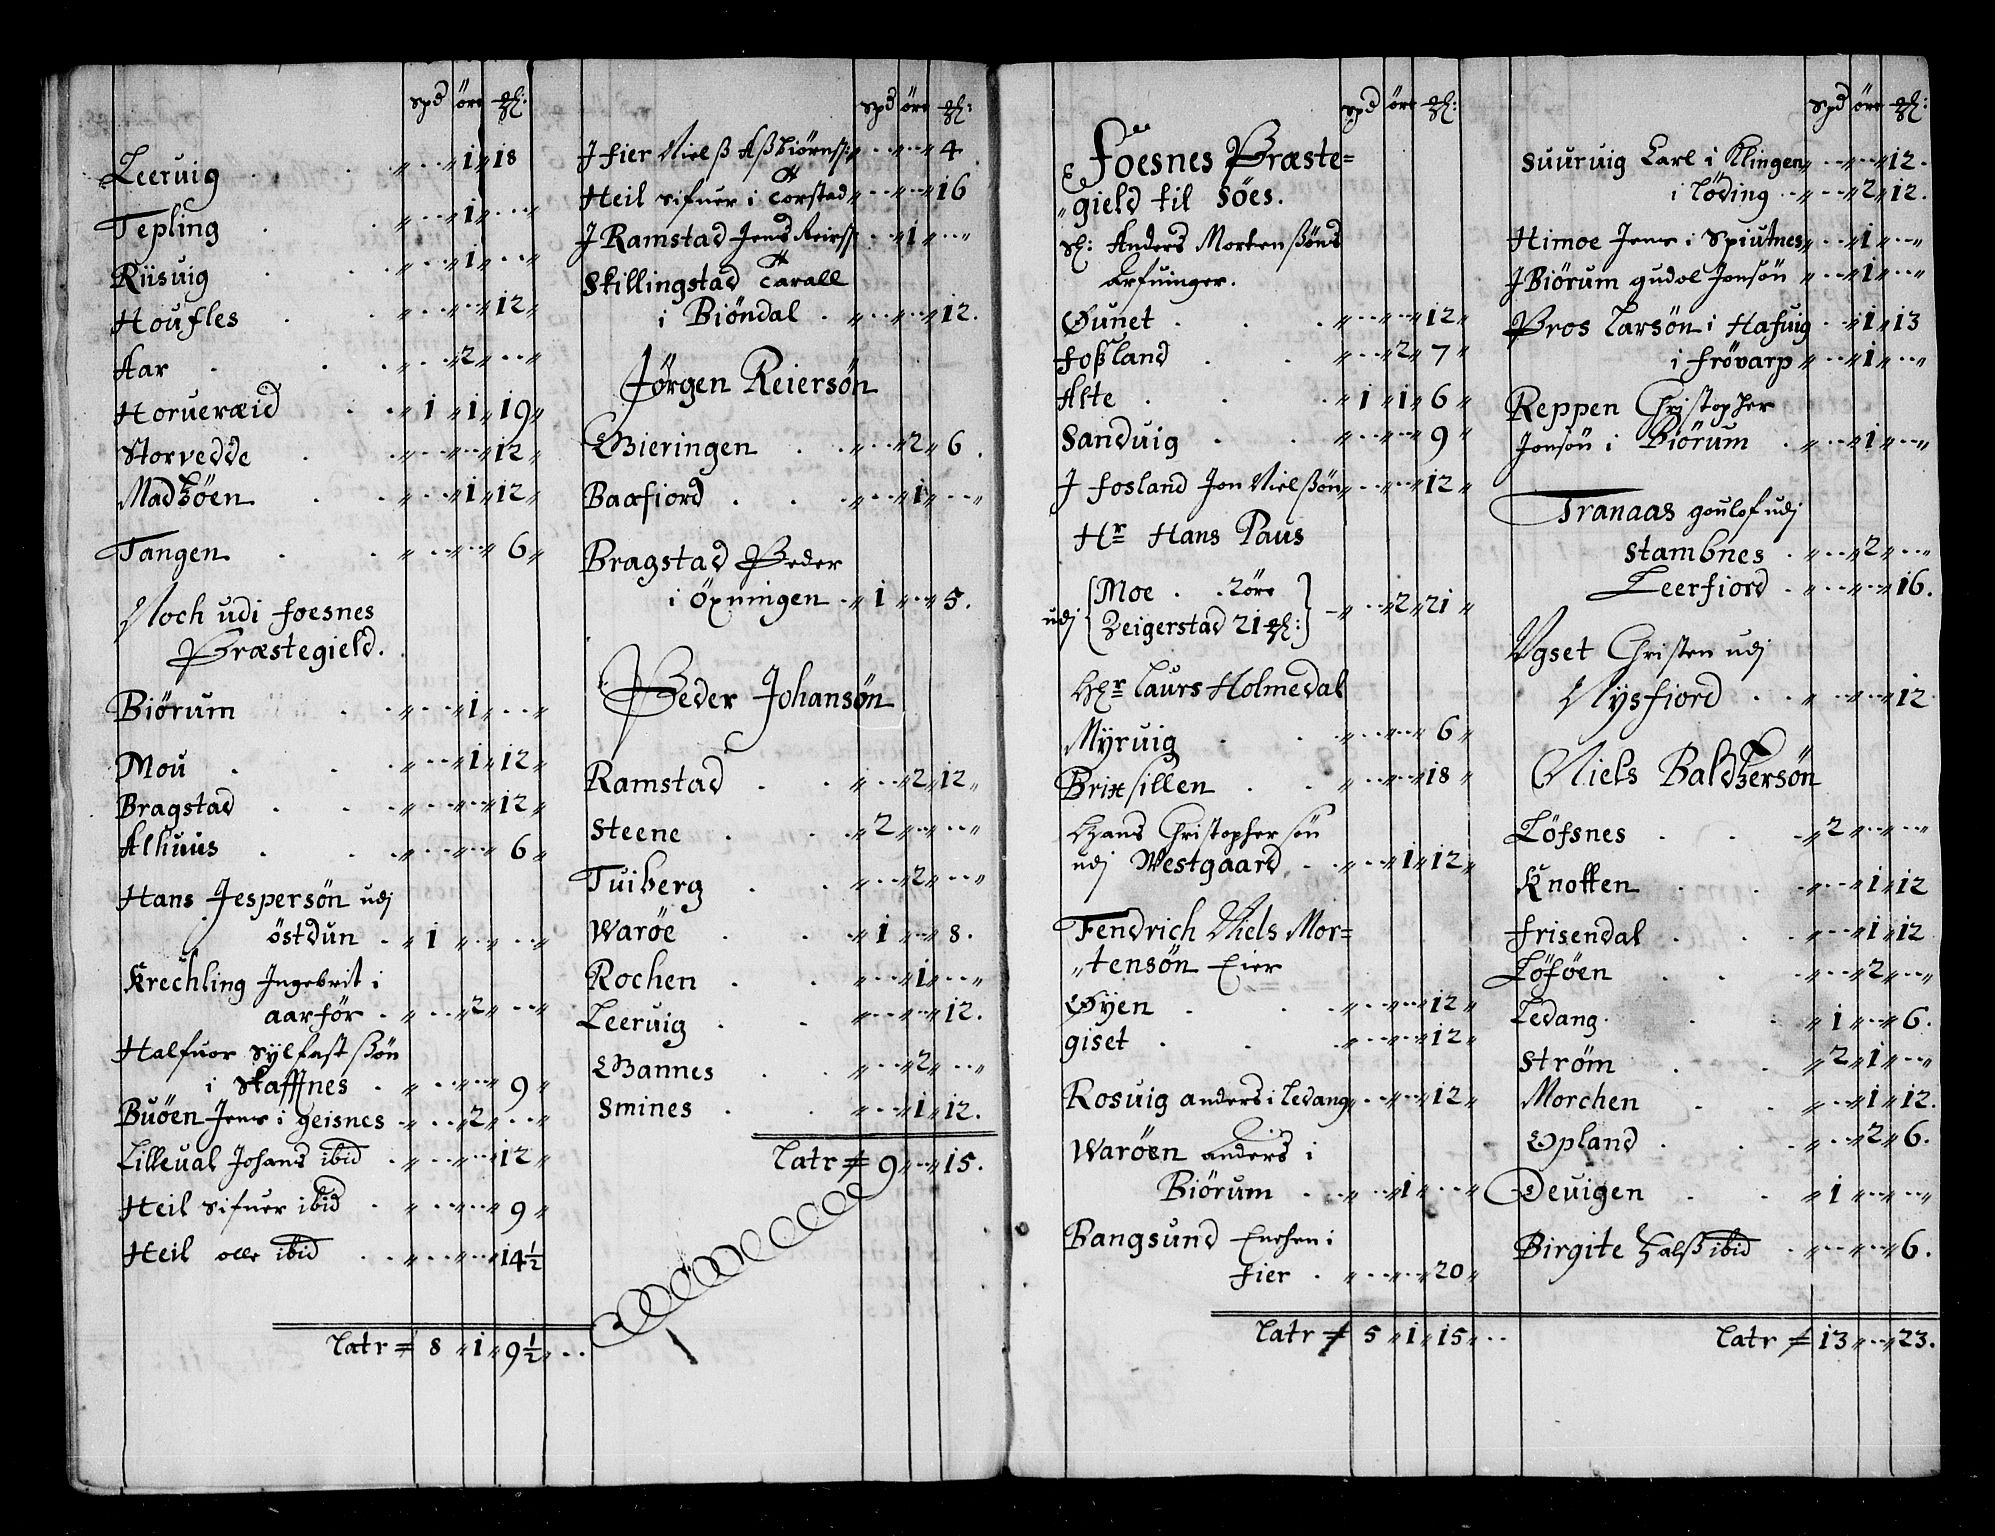 spd öre
Leeruig . . „ .. „ 1 „ 18
Tepling . . „ .. „ 1 „ .. „
Riisuig . . „ .. „ 1 „ .. „
Houfles . . „ .. „ .. „ 12 „
Aar . . . „ .. „ 2 „ .. „
Horueræid . . „ 1 „ 1 „ 19 „
Storvedde . . „ .. „ .. „ 12 „
Madtzöen . . „ .. „ 1 „ 12 „
Tangen . . „ .. „ .. „ 6 „
Noch udi foesnes
Præstegield.
Biörum . . „ .. „ 1 „ .. „
Mou . . „ .. „ 1 „ 12 „
Bragstad . . „ .. „ .. „ 12 „
Alhuus . . „ .. „ .. „ 6 „
Hans Jespersön udj
östdun . „ 1 „ .. „ .. „
Krechling Ingebrit i
aarför . „ .. „ 2 „ .. „
Halfuor Sylfast ssön
i Skaffnes . „ .. „ .. „ 9 „
Buöen Jens i geisnes . „ .. „ 2 „ .. „
Lilleual Johans ibid . „ .. „ .. „ 12 „
Heil Sifuer ibid . „ .. „ .. „ 9 „
Heil olle ibid . „ .. „ .. „ 14½
Latr 8 „ 1 „ 9½ „ ..
spd öre
J fier Niels Aßbiörnss: „ .. „ .. „ 4
Heil Sifuer i Torstad „ .. „ .. „ 16
J Ramstad Jens Reirss: .. „ 1 „ .. „
Skillingstad Tarall
i Biöndal . „ .. „ .. „ 12.
Jörgen Reiersön
Gieringen . . „ .. „ 2 „ 6 .
Baafiord . . „ .. „ 1 „ .. „
Bragstad Peder
i öxningen . „ 1 „ .. „ 5.
Peder Johansön
Ramstad . . „ .. „ 2 „ 12 „
Steene . . „ 2 „ .. „ .. „
Tuiberg . . „ .. „ 2 „ .. „
Waröe . . „ 1 „ .. „ 8.
Rochen . . „ .. „ 1 „ .. „
Leeruig . . „ .. „ .. „ 12.
Bannes . . „ .. „ 2 „ .. „
Smines . . „ .. „ 1 „ 12.
Latr 9 „ .. „ 15.
spd öre
Foesnes Præste=
„gield til Söes.
Sl: Anders Mortenssöns
Arfuinger.
Öunet . . . „ .. „ .. „ 12 „
foßland . . „ .. „ 2 „ 7 „
Alte . . „ 1 „ 1 „ 6 „
Sanduig . . „ .. „ .. „ 9 „
J fosland Jon Nielssön „ .. „ .. „ 12 „
Hr Hans Paus
udj Moe . . 2 öre
Zeigerstad 21 „ .. „ 2 „ 21 „
Hr Laurs Holmedal
Myruig . . „ .. „ .. „ 6 „
Brixsillen . . „ .. „ .. „ 18 „
Hans Christophersön
udj Westgaard . „ .. „ 1 „ 12 „
Fendrich Niels Mor=
„tensön Eier
Öyen . . „ .. „ .. „ 12 „
giset . . „ .. „ .. „ 12 „
Rosuig anders i Ledang „ .. „ .. „ 12 „
Waröen anders i
Biörum . . „ .. „ 1 „ .. „
Bangsund Enchen i
fier . „ .. „ .. „ 20 „
Latr 5 „ 1 „ 15 „ ..
spd öre
Suuruig Carl i Klingen „ .. „ .. „ 12.
i Löding . „ .. „ 2 „ 12.
Himoe Jens i Spiutnes „ .. „ 1 „ .. „
J Biörum gudol Jonsön „ .. „ 1 „ .. „
Pros Larsön i Hafuig . .. „ 1 „ 13
i frövarp „ .. „ 1 „ .. „
Reppen Christopher
Jonsön i Biörum . „ .. „ 1 „ .. „
Tranaas goulof udj
Stambnes . „ .. „ 2 „ .. „
Leerfiord . „ .. „ .. „ 16.
Ygset Christen udj
Nysfiord . . „ .. „ .. „ 12.
Niels Baldtzersön
Löfsnes . . „ 2 „ .. „ .. „
Knotten . . „ .. „ 1 „ 12
frisendal . . „ .. „ 1 „ 12
Löföen . . „ .. „ 2 „ .. „
Ledang . . „ 1 „ .. „ 6.
Ström . . „ 2 „ 1 „ .. „
Morchen . . „ .. „ 1 „ 12.
Opland . . „ .. „ 2 „ 6.
Deuigen . . „ 1 „ .. „ .. „
Birgite Halß ibid . „ .. „ .. „ 6.
Latr 13 „ .. „ 23.